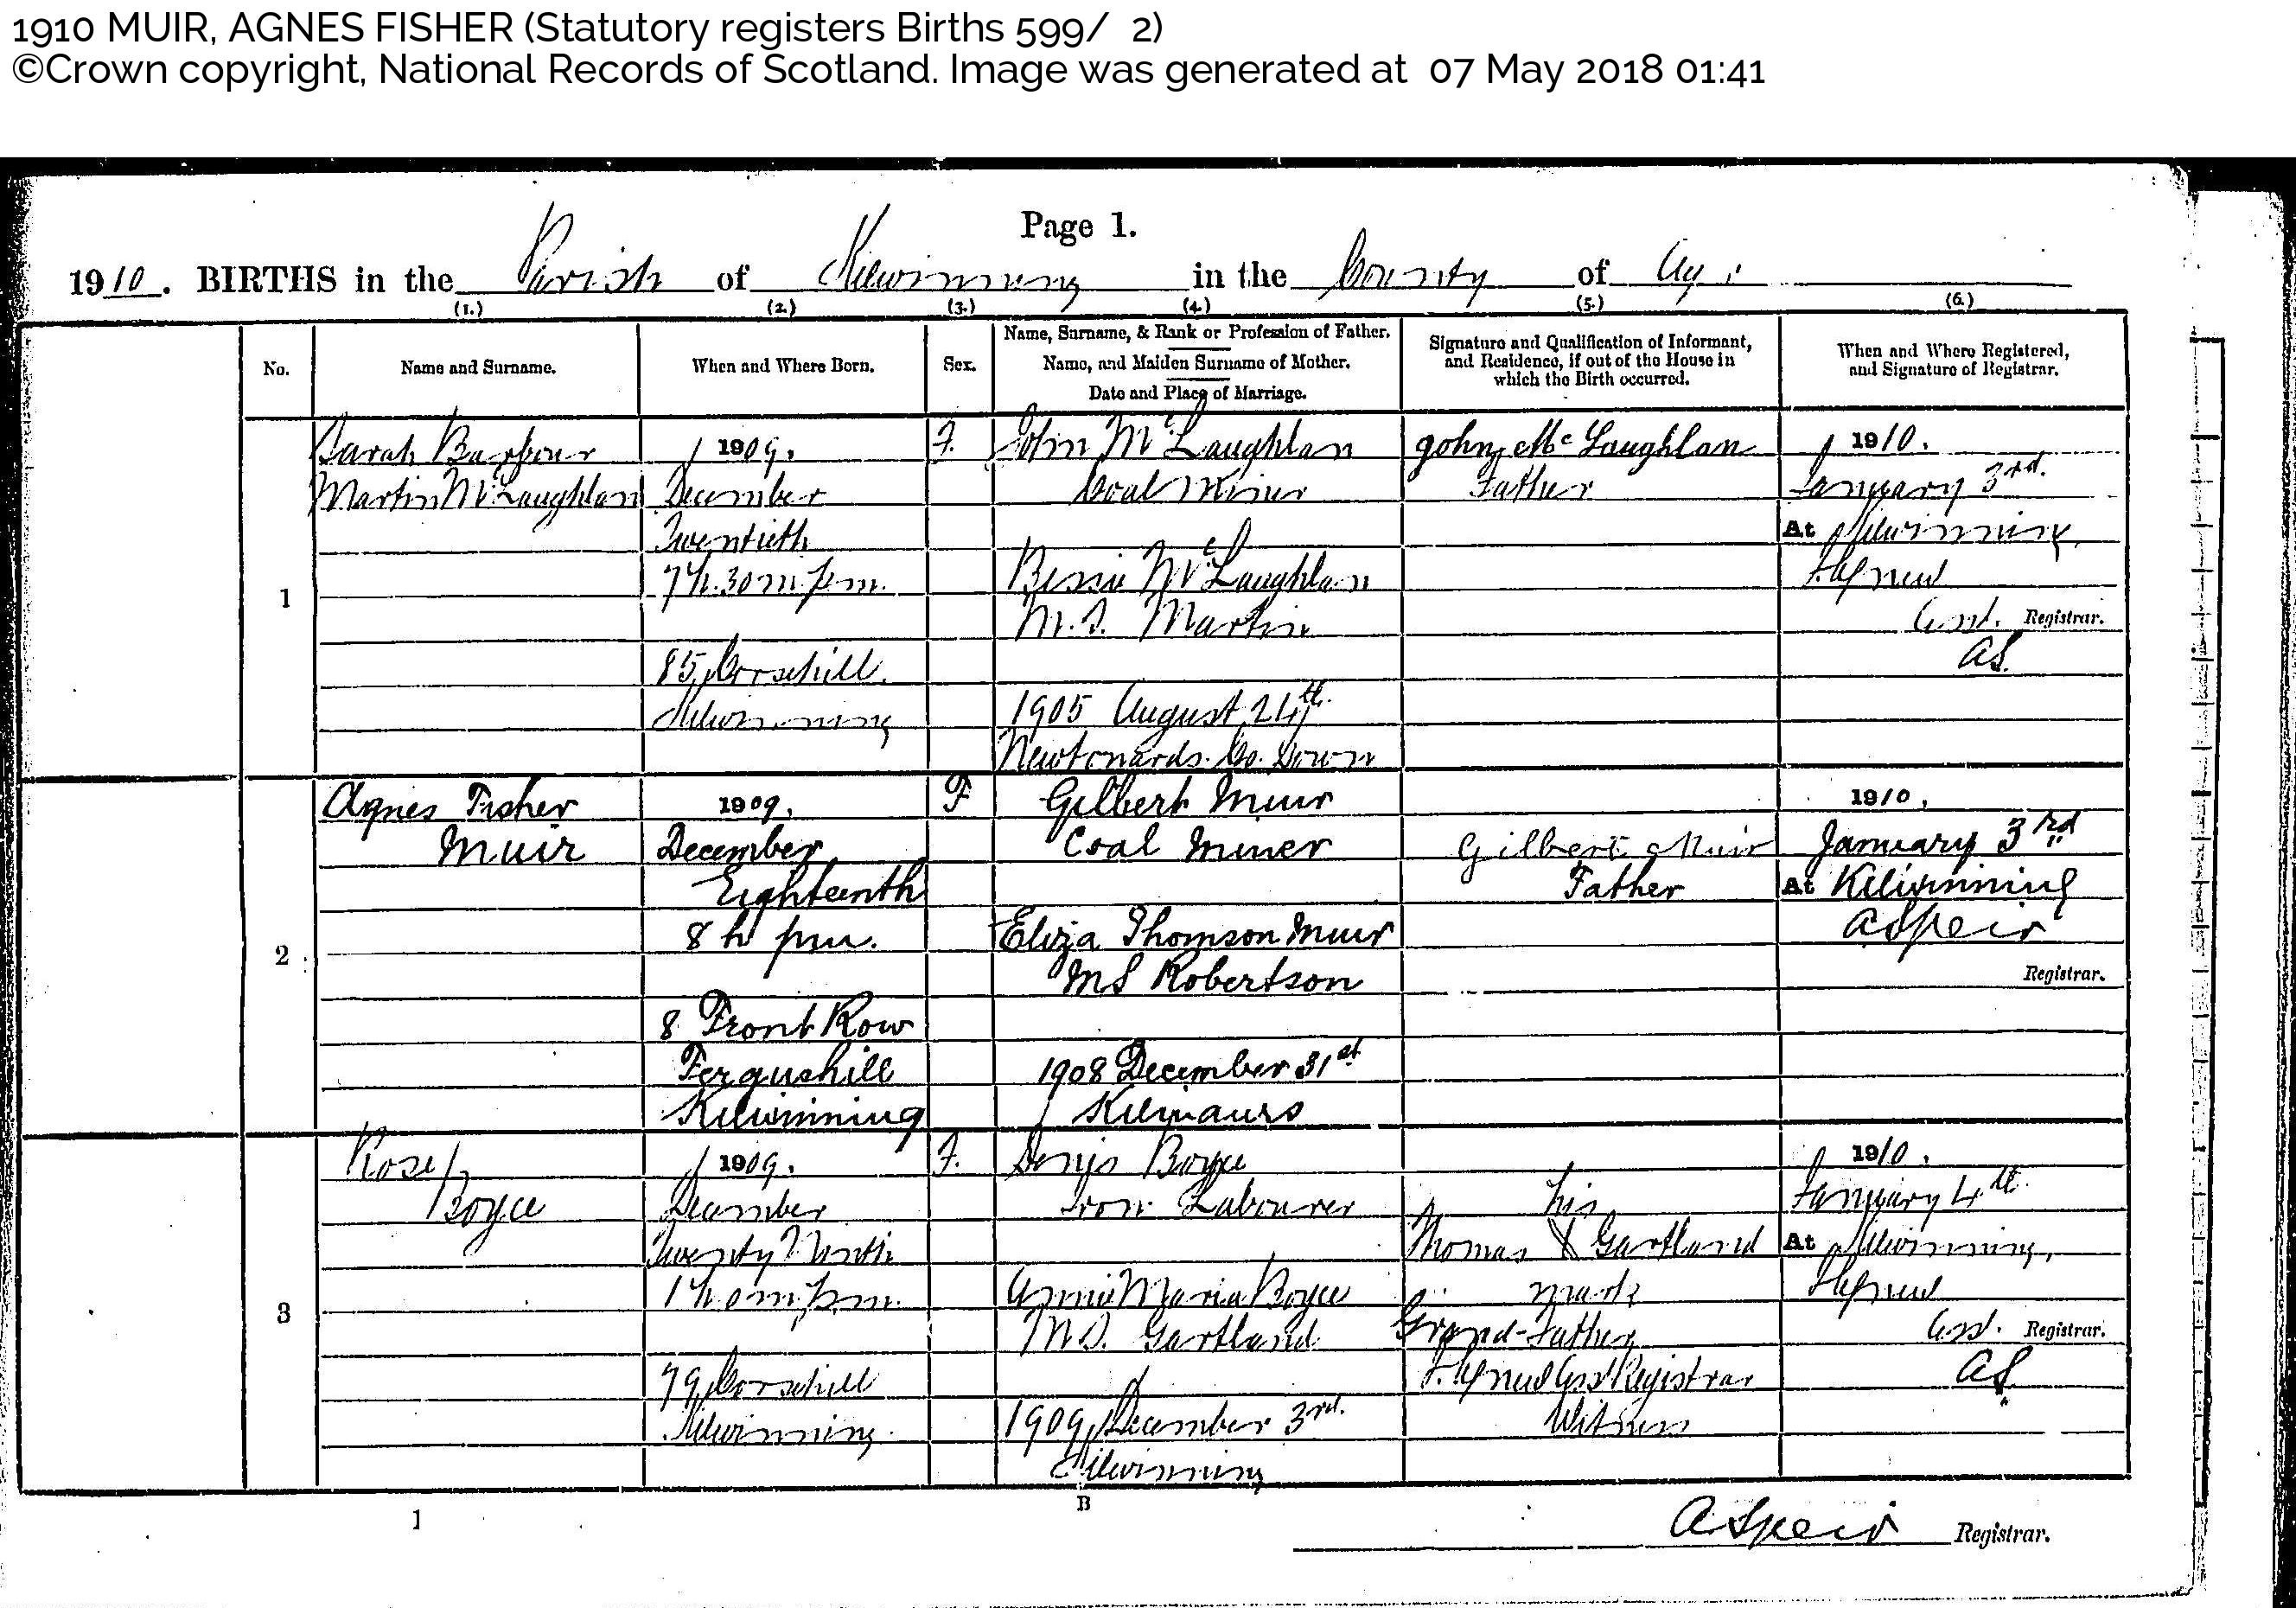 1910 MUIR, AGNES FISHER (Statutory registers Births 599/ 2)
©Crown copyright, National Records of Scotland. Image was generated at 07 May 2018 01:41
Page 1.
1910. BIRTHS in the Parish of Kilwinning in the County of Ayr
(1.) (2.) (3.) (4.) (5.) (6.)
No.
Name and Surname.
When and Where Born.
Sex.
Name, Surname, & Rank or Profession of Father.
Name, and Maiden Surname of Mother.
Date and Place of Marriage.
Signature and Qualification of Informant,
and Residence, if out of the House in
which the Birth occurred.
When and Where Registered,
and Signature of Registrar.
1
Sarah Barbour
Martin McLaughlan
1909.
December
Twentieth
7h. 30m. p.m.
85, Corsehill.
Kilwinning
F.
John McLaughlan
Coal Miner
Bessie McLaughlan
M.S. Martin
1905 August 24th.
Newtonards. Co. Down
John McLaughlan
Father
1910.
January 3rd.
At Kilwinning.
Asst. Registrar.
AS.
2
Agnes Fisher
Muir
1909.
December
Eighteenth
8 h pm.
8 Front Row
Fergushill
Kilwinning
F
Gilbert Muir
Coal Miner
Eliza Thomson Muir
MS Robertson
1908 December 31st
Kilmaurs
Gilbert Muir
Father
1910.
January 3rd
At Kilwinning
A Speir
Registrar.
3
Rose
Boyce
1909.
December
Twenty Ninth
1h. 0m. p.m.
79, Corsehill
Kilwinning.
F.
Denis Boyce
Iron Labourer
Annie Maria Boyce
M.S. Gartland
1909, December 3rd.
Kilwinning
his
Thomas X Gartland
mark
Grand-Father
Asst Registrar
Witness
1910.
January 4th.
At Kilwinning,
Asst. Registrar.
AS.
1
B
A Speir Registrar.